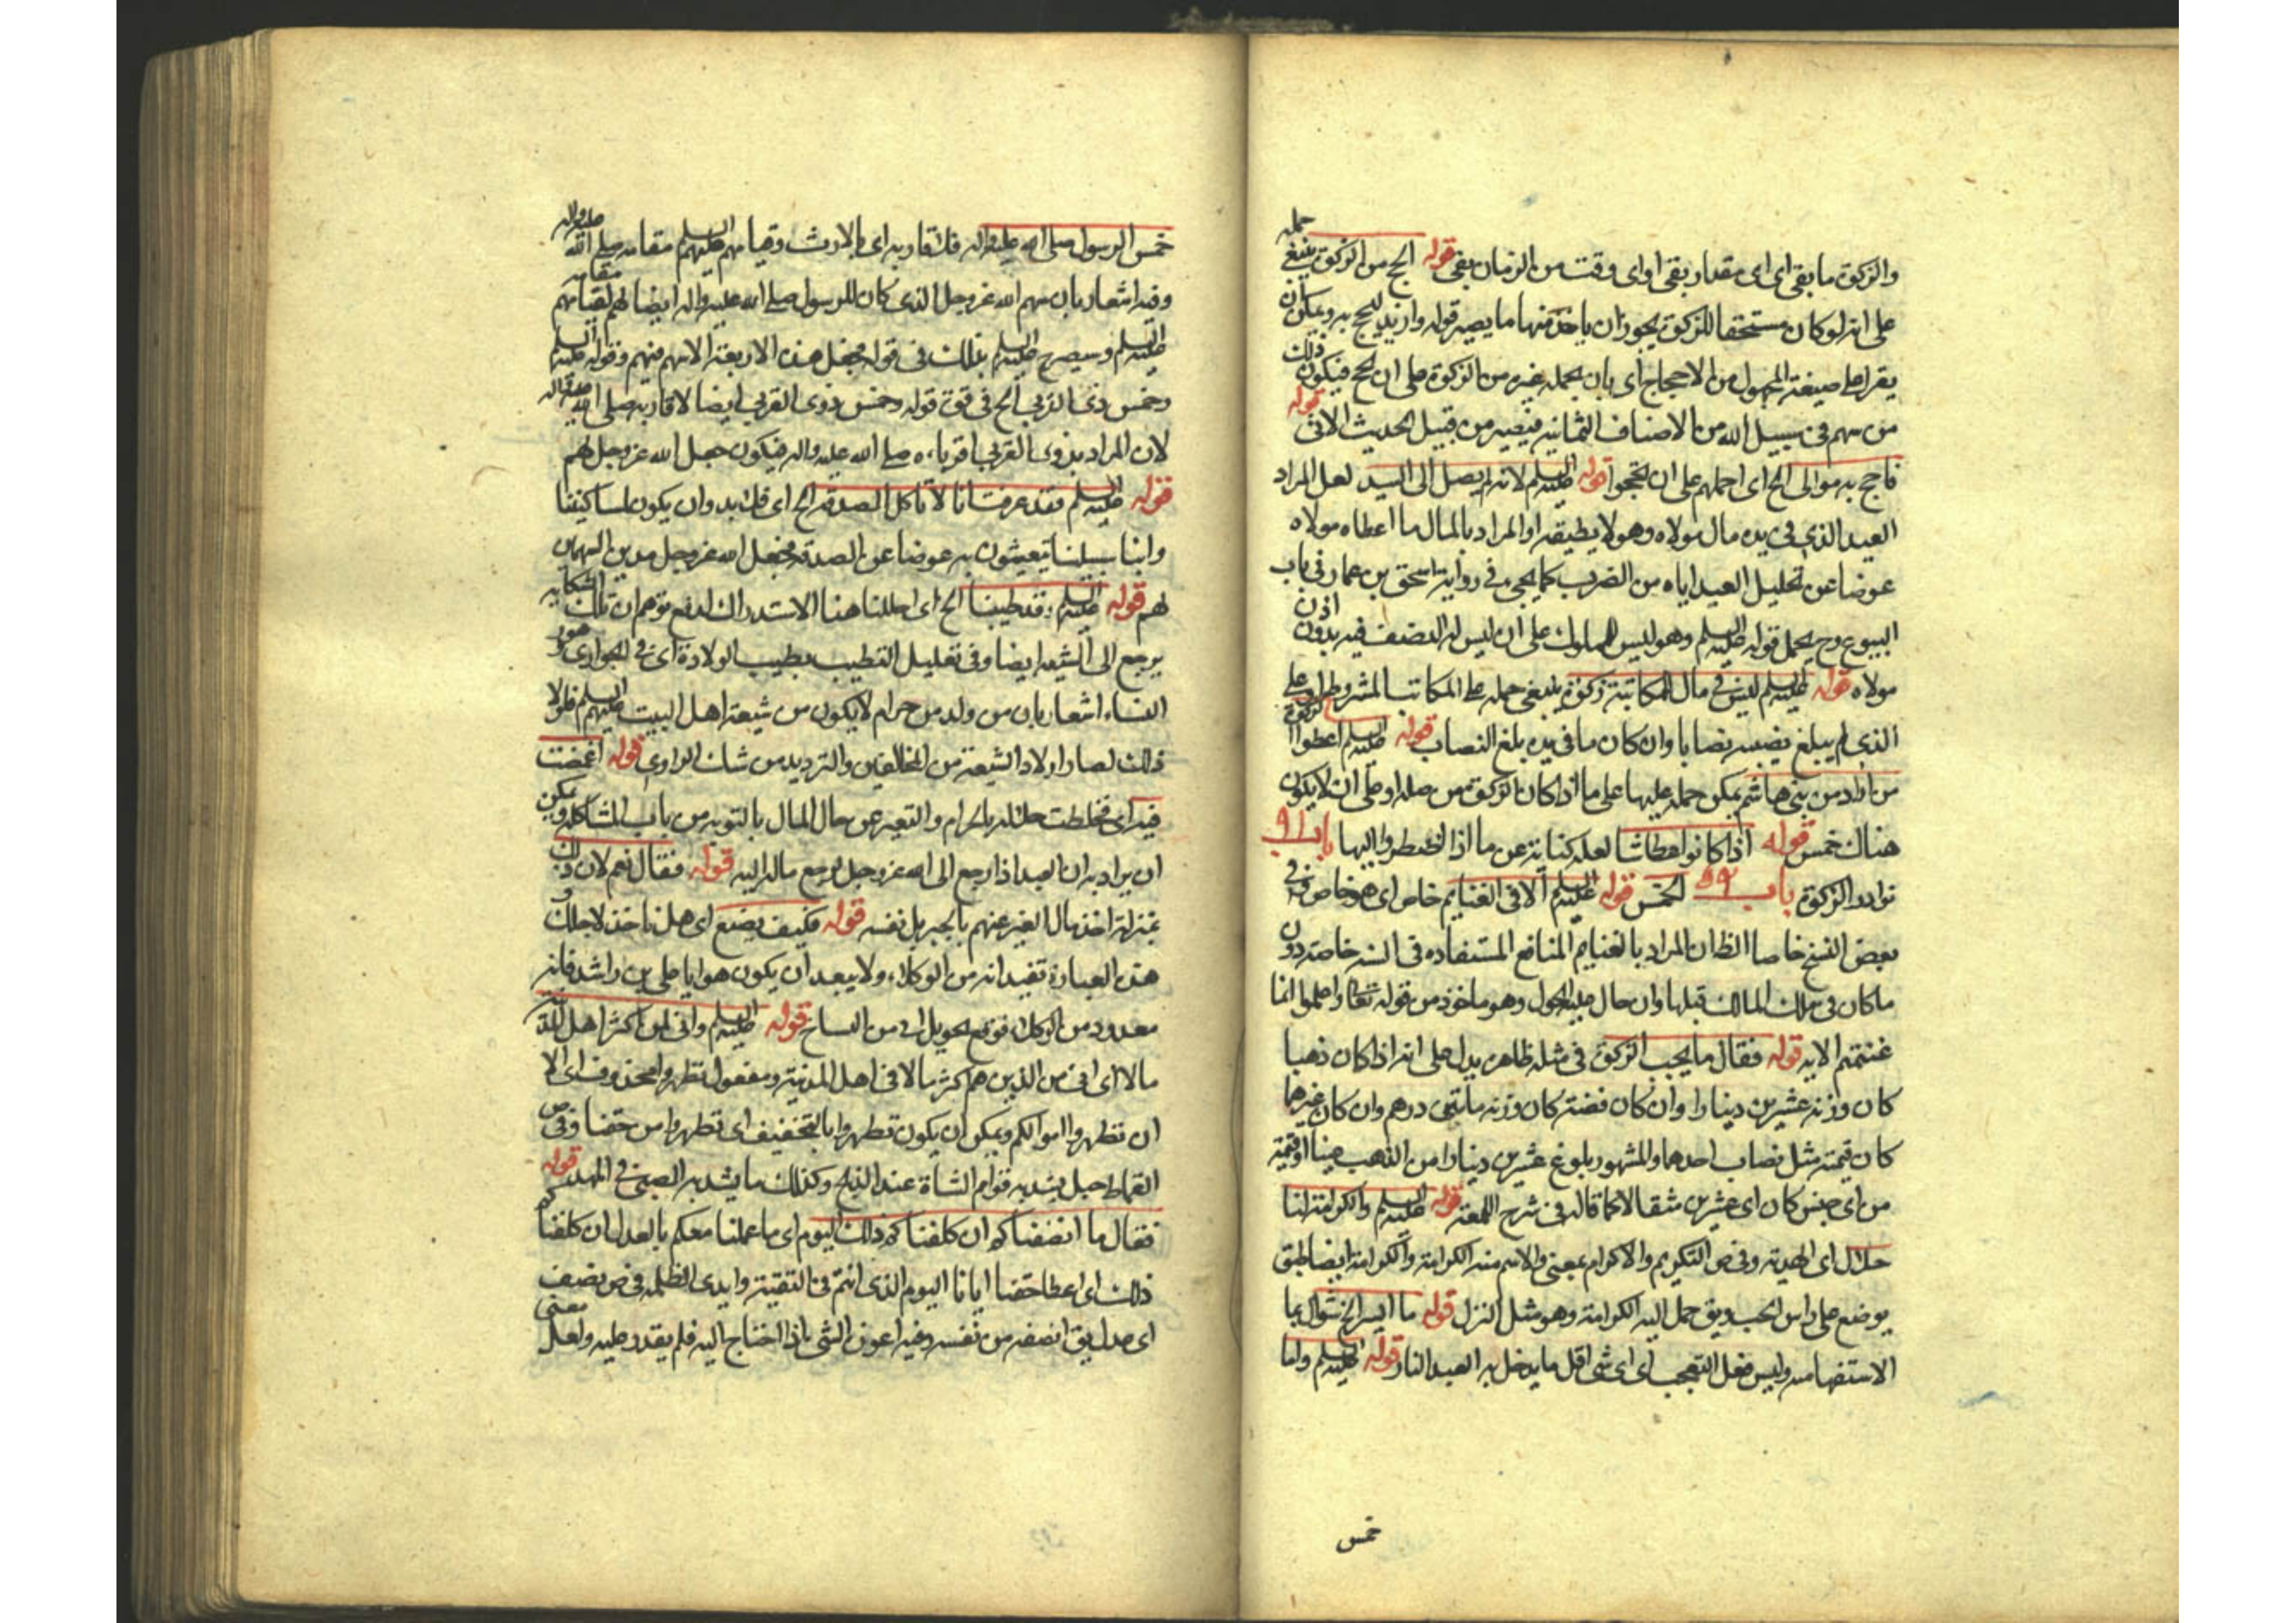 والزكوة ما بقى اى اى مقدار بقى او اى وقت من الزمان بقى قوله الحج من الزكوة ينبغى حمله
على انه لو كان مستحقا للزكوة يجوز ان ياخذ منها ما يصير قوله وازيد للحج به ويمكن ان
يقرا على صيغة المجهول من الاحجاج اى بان يحمله غيره من الزكوة على ان يحج فيكون ذلك
من سهم فى سبيل الله من الاصناف الثمانية فيصير من قبيل الحديث الاتى قوله
فاحج به موالى الخ اى احملهم على ان يحجوا قوله عليه السلم لانه لم يصل الى السيد لعل المراد
العبد الذى فى يده مال مولاه وهو لا يطيقه او المراد بالمال ما اعطاه مولاه
عوضا عن تحليل العبد اياه من الضرب كما يجىء فى رواية اسحق بن عمار فى باب
البيوع وح يحمل قوله عليه السلم وهو ليس للمملوك على ان ليس له التصرف فيه بدون اذن
مولاه قوله عليه السلم ليس فى مال المكاتبة زكوة ينبغى حمله على المكاتب المشروط او على
الذى لم يبلغ نصيبه نصابا وان كان ما فى يده بلغ النصاب قوله عليه السلم اعطوا الزكوة
من ارادمن بنى هاشم يمكن حمله عليها على ما اذا كان الزكوة من مثله او على ان لا يكون
هناك خمس قوله اذا كانوا عطاشا لعله كناية عن ما اذا اضطروا اليها باب ٩١
نوادر الزكوة باب الخمس قوله عليه السلم الا فى الغنايم خاص اى هو خاص وفى
بعض النسخ خاصا الظان المراد بالغنايم المنافع المستفاده فى السنه خاصة دون
ما كان فى ملك المالك قبلها وان حال عليه الحول وهو ماخوذ من قوله تعالى واعلموا انما
غنمتم الايه قوله فقال ما يجب الزكوة فى مثله ظاهره يدل على انه اذا كان ذهبا
كان وزنه عشرين دينارا وان كان فضة كان وزنه مأتى درهم وان كان غيرهما
كان قيمته مثل نصاب احدهما والمشهور بلوغ عشرين دينارا من الذهب عينا او قيمة
من اى جنس كان اى عشرين مثقالا كما قاله فى شرح اللمعة قوله عليه السلم والكرامة لنا
حلال اى الهدية وفى ص التكريم والاكرام بمعنى والاسم منه الكرامة والكرامة ايضا طبق
يوضع على راس الحب ويق حمل اليه الكرامة وهو مثل النزل قوله ما ايسر الخ سؤال بما
الاستفهاميه وليس فعل التعجب اى اى شى اقل ما يدخل به العبد النار قوله عليه السلم واما
خمس
خمس الرسول صلى الله عليه واله فلاقاربه اى بالارث وقيامهم عليهم السلم مقامه صلى الله عليه واله
وفيه اشعار بان سهم الله عز وجل الذى كان للرسول صلى الله عليه واله ايضا لهم لقيامهم مقامه
عليه السلم وسيصرح عليه السلم بذلك فى قوله فجعل هذه الاربعة الاسهم فيهم وقوله عليه السلم
وخمس ذى القربى الخ فى قوة قوله وخمس ذوى القربى ايضا لاقاربه صلى الله عليه واله
لان المراد بذوى القربى اقرباءه صلى الله عليه واله فيكون جعل الله عز وجل لهم
قوله عليه السلم وقد عرفت انا لا ناكل الصدقة الخ اى فلا بد وان يكون لمساكيننا
وابنا سبيلنا ما يتعيشون به عوضا عن الصدقة فجعل الله عز وجل هذين السهمين
لهم قوله عليه السلم وقد طيبنا الخ اى احللنا هنا الاستدراك لدفع توهم ان تلك الشكايه
يرجع الى الشيعه ايضا وفى تعليل التطييب بطيب الولادة اى فى الجوارى
النساء اشعار بان من ولد من حرام لا يكون من شيعة اهل البيت عليهم السلم فلولا
ذلك لصار اولاد الشيعة من المخالفين والترديد من شان الراوى قوله اغمضت
فيه اى فخلطت حلاله بالحرام والتعبير عن حال المال بالتوبه من باب المشاكله ويمكن
ان يراد به ان العبد اذا رجع الى الله عز وجل يرجع ماله اليه قوله فقال نعم لان ذلك
بمنزلة اخذ مال الغير عنهم بالجبر بل نفسه قوله فكيف يصنع اى هل ناخذ لاجلك
هذه العبارة تفيد انه من الوكلاء ولا يبعد ان يكون هو ابا على بن راشد فانه
معدود من الوكلاء فوقع تحويل اى من النساخ قوله عليه السلم وانى لمن اكثر اهل المدينة
مالا اى انى من الذين هم اكثر مالا فى اهل المدينة ومفعول تطهروا محذوف اى الا
ان تطهروا اموالكم ويمكن ان يكون تطهروا بالتخفيف اى تطهروا من حقنا وفى ص
القماط حبل يشد به قوايم الشاة عند الذبح وكذلك ما يشد به الصبى فى المهد قوله
فقال ما انصفناكم ان كلفناكم ذلك اليوم اى ما عملنا معكم بالعدل ان كلفناكم
ذلك اى اعطا حقنا ايانا اليوم الذى انتم فى التقية وايدى الظلمه فى ص نصف
اى عدل يق انصفه من نفسه وفيه اعوزه الشى اذا احتاج اليه فلم يقدر عليه ولعل معنى